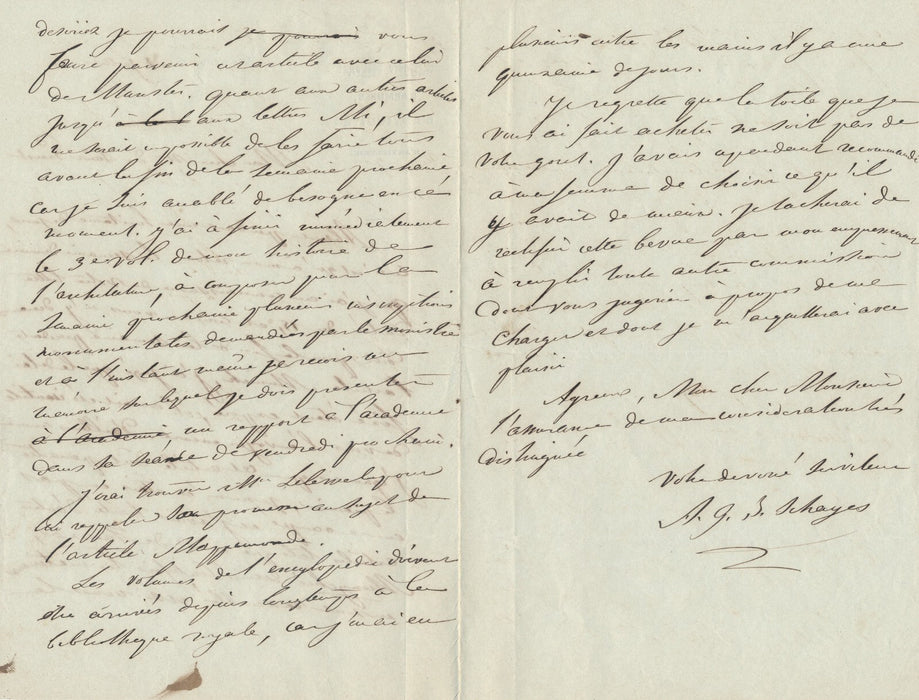 desiriez je pourrais je pourrais vous
faire parvenir cet article avec celui
de Munster. quant aux autres articles
jusqu'à aux lettres Mi, il
me serait impossible de les faire tous
avant la fin de la semaine prochaine
car je suis accablé de besogne en ce
moment. j'ai à finir immédiatement
le 3e vol. de mon histoire de
l'architecture, à composer pour la
semaine prochaine plusieurs inscriptions
monumentales demandées par le ministère
et à l'instant même je reçois un
mémoire sur lequel je dois presenter
à l'académie un rapport à l'académie
dans la séance de vendredi prochain.
J'irai trouver Mr. Lelewel pour
lui rappeler sa promesse au sujet de
l'article Mappemonde.
Les volumes de l'encyclopédie doivent
etre arrivés depuis longtemps à la
bibliothèque royale, car j'en ai eu
plusieurs entre les mains il y a une
quinzaine de jours.
Je regrette que la toile que je
vous ai fait acheter ne soit pas de
votre gout. J'avais cependant recommandé
à ma femme de choisir ce qu'il
y avait de mieux. Je tacherai de
rectifier cette bevue par mon empressement
à remplir toute autre commission
dont vous jugeriez à propos de me
charger et dont je m'aquitterai avec
plaisir
Agreez, Mon cher Monsieur
l'assurance de ma consideration très
distinguée
Votre devoué serviteur
A. G. B. Schayes